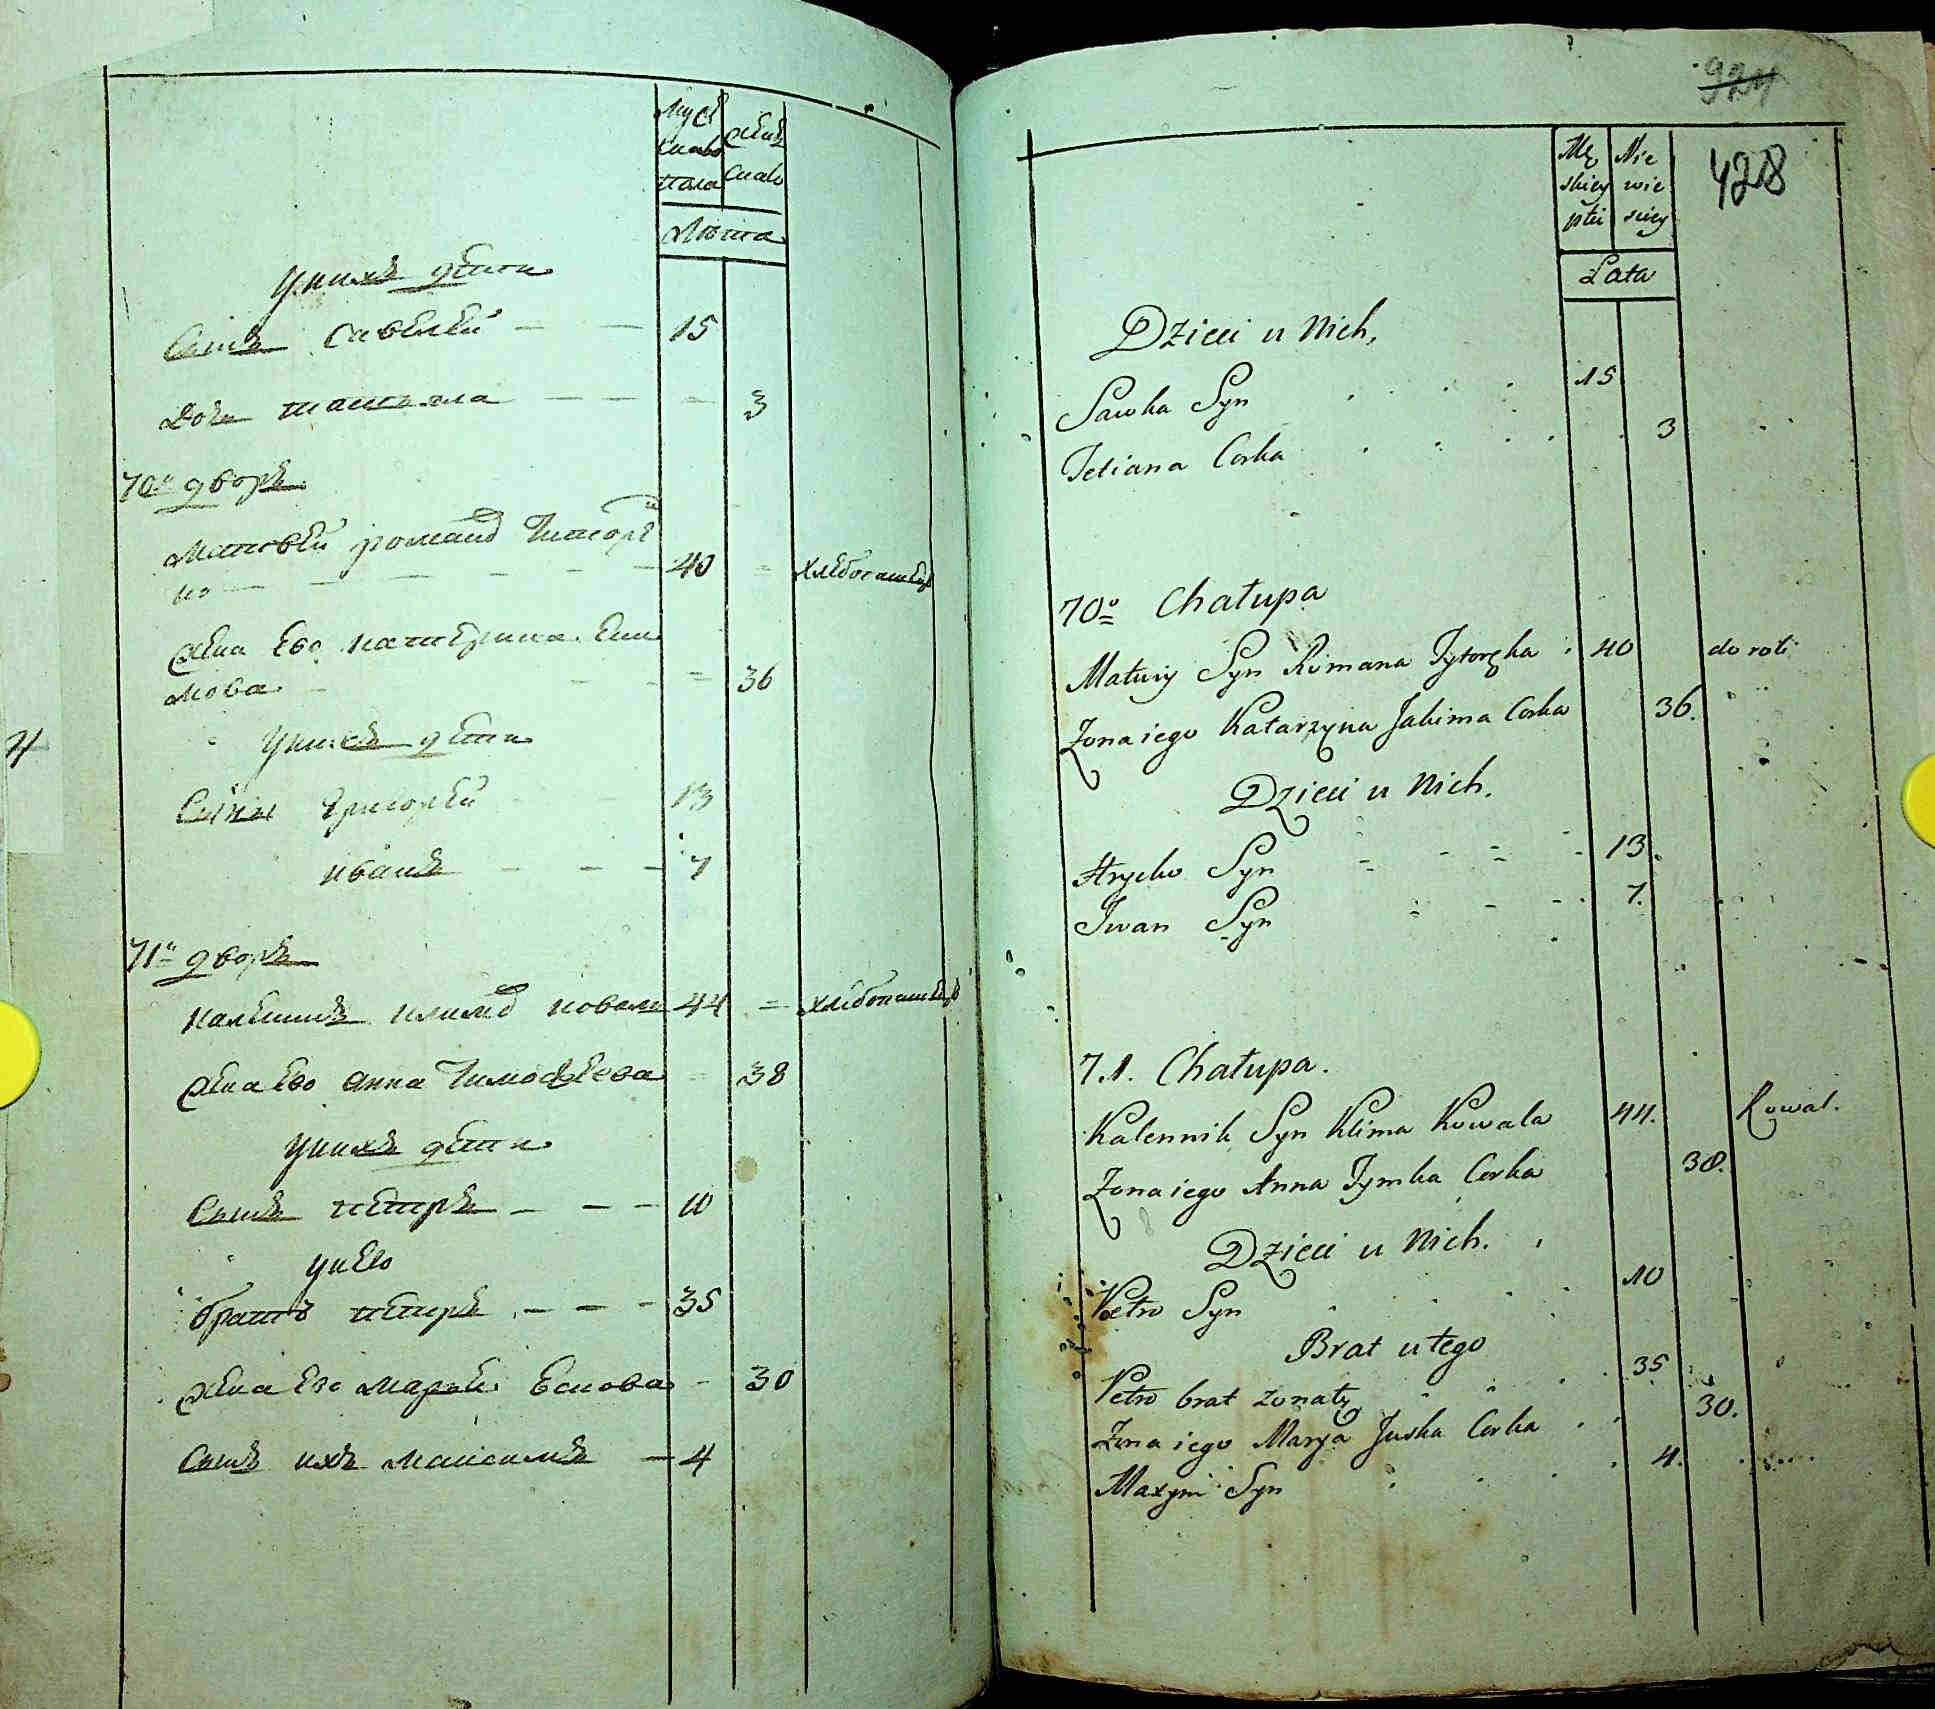 Муж
скаго
пола
Жен
скаго
Лѣта
У нихъ дѣти
Сынъ Савелей — — 15
Дочь татьяна — — — 3
70й дворъ
Матвей романо Титоре
ко — — — — 40 = хлебопашец
Жена Ево катерина Еки
мова — — = 36
У нихъ дети
Сыны Григорей 13
иванъ — — — 7
71й дворъ
Каленикъ климо коваль 44 = хлебопашецъ
Жена Ево анна Тимофеева 38
У нихъ дети
Сынъ петръ — — — 10
У нево
братъ петръ — — — 35
Жена Ево Марья Ескова - 30
Сынъ ихъ Максимъ — 4
924
428
Mę
skiey
płci
Nie
wie
sciey
Lata
Dzieci u Nich,
Sawka Syn 15
Tetiana Corka 3
70o Chałupa
Matwiy Syn Romana Tytoręka 40 do roli
Zona iego Katarzyna Jakima Corka 36.
Dzieci u Nich.
Hrycko Syn 13.
Iwan Syn 7.
7.1. Chałupa.
Kalennik Syn Klima Kowala 44. Kowal.
Zona iego Anna Tymka Corka 38.
Dzieci u Nich.
Petro Syn 10
Brat u tego
Petro brat zonaty 35
Zona iego Marya Juska Corka 30.
Maxym Syn 4.